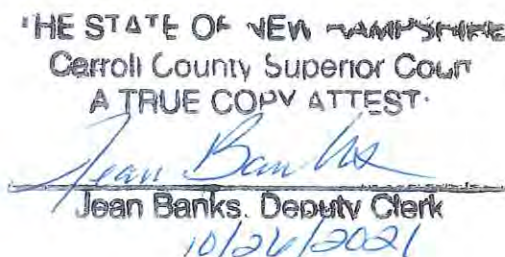 THE STATE OF NEW HAMPSHIRE
Carroll County Superior Court
A TRUE COPY ATTEST.
Jean Banks
Jean Banks, Deputy Clerk
10/26/2021